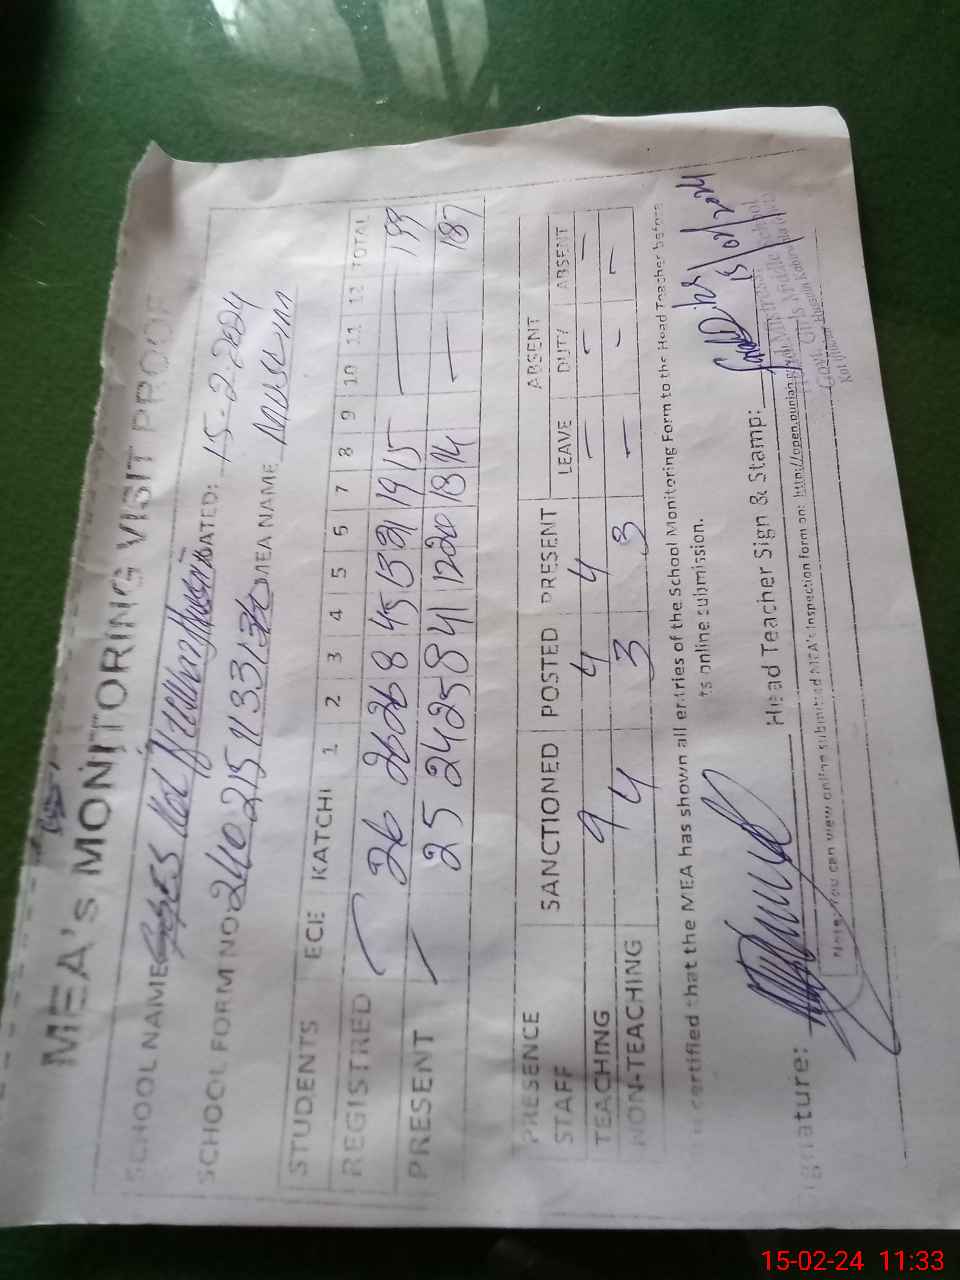 MEA's MONITORING VISIT PROOF
SCHOOL NAME GGES Kot DATED: 15-2-2024
SCHOOL FORM NO MEA NAME
STUDENTS ECE KATCHI 1 2 3 4 5 6 7 8 9 10 11 12 TOTAL
REGISTRED 26 26 26 8 45 13 21 19 15 199
PRESENT 25 24 25 8 41 12 20 18 14 187
PRESENCE ABSENT
STAFF SANCTIONED POSTED PRESENT LEAVE DUTY ABSENT
TEACHING 9 4 4 — — —
NON-TEACHING 4 3 3 — — —
certified that the MEA has shown all entries of the School Monitoring Form to the Head Teacher before
its online submission.
Signature: Head Teacher Sign & Stamp: 15/02/2024
Note: You can view online submitted MEA's Inspection form on: http://open.punjab
15-02-24 11:33